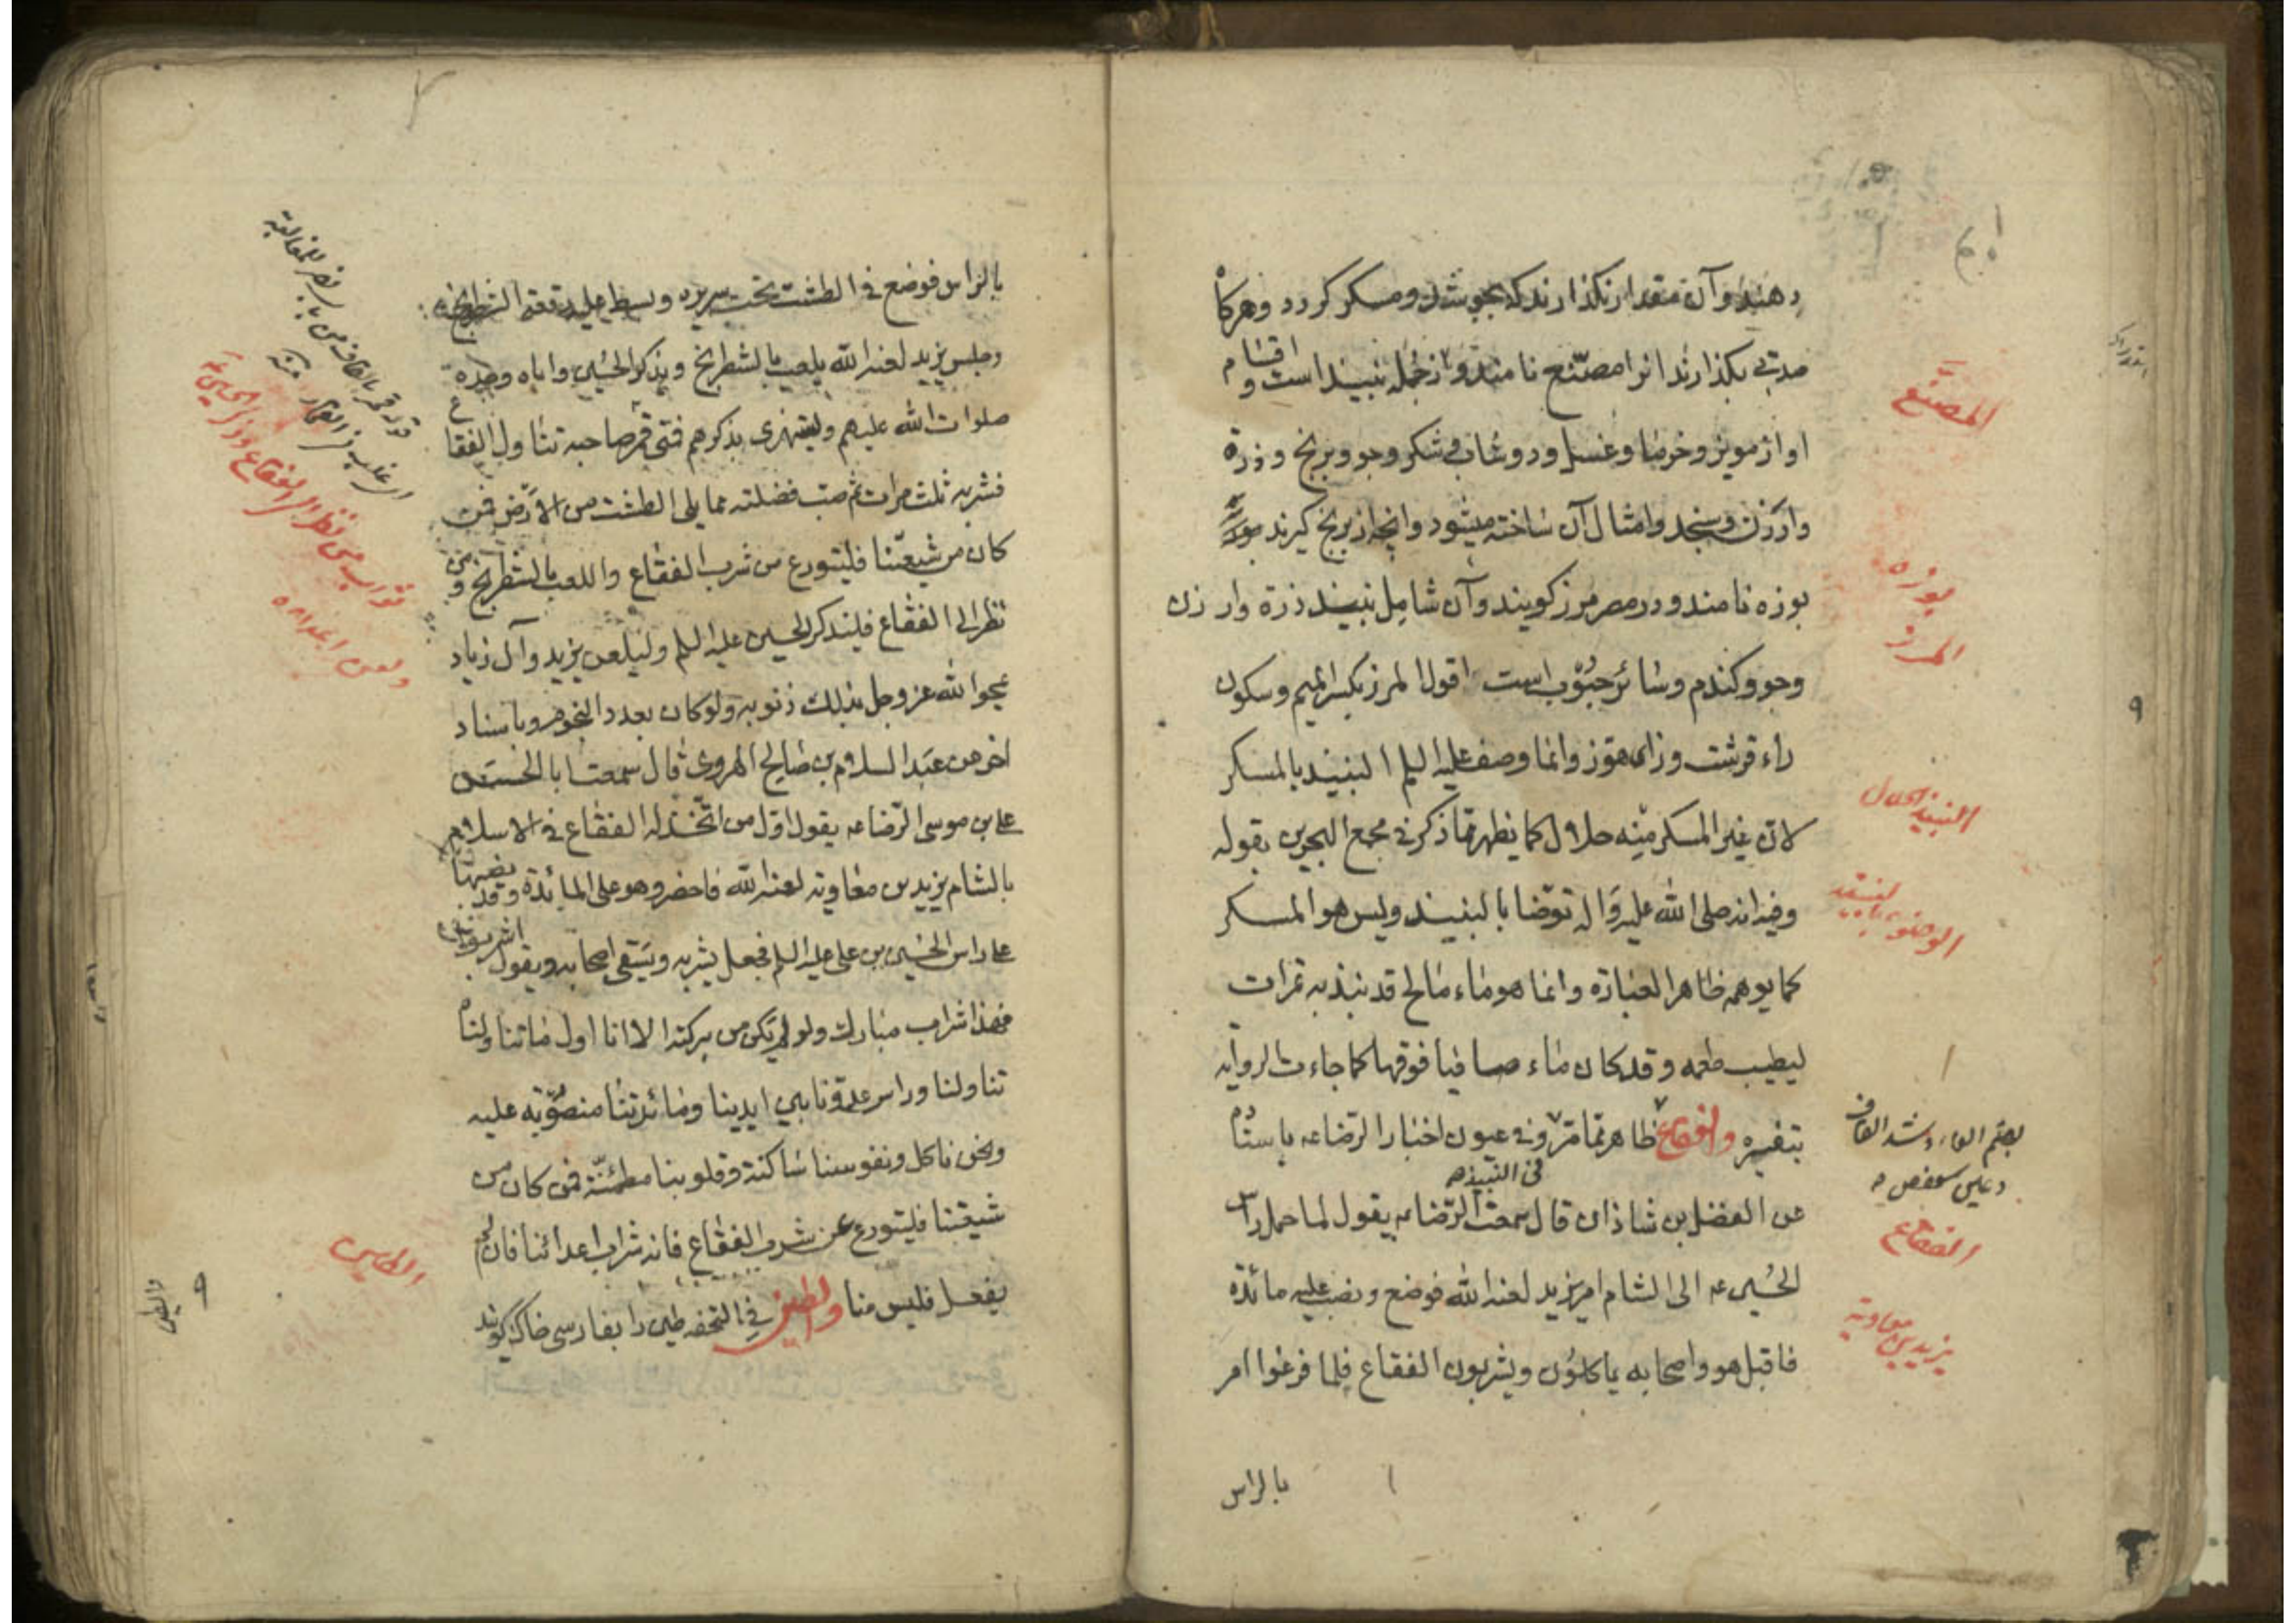 دهند و آن مقدار نکذارند که بجوشد و مسکر کردد و هرکاه
مدتی بکذارند انرا مصنّع نامند و از جمله نبیند است و اقسام
او از مویز و خرما و عسل و دوشاب و شکر و جو و برنج و ذرة
وارزن و سنجد و امثال آن ساخته میشود و انچه از برنج کیرند
بوزه نامند و در مصر مرز کویند و آن شامل نبیند ذرة و ارزن
وجو و کندم و سائر حبوب است اقول المرز بکسر المیم و سکون
راء قرشت و زای هوّز وانما وصف علیه السلم النبیند بالمسکر
لان غیر المسکر منه حلال کما یظهر مما ذکر فی مجمع البحرین بقوله
وفیه انه صلی الله علیه واله توضا بالنبیند ولیس هو المسکر
کما یوهمه ظاهر العبارة وانما هو ماء مالح قد نبذ به تمرات
لیطیب طعمه و قد کان ماء صافیا فوقها کما جاءت الروایه
بتفسیره والفقاع ظاهر مما مرّ وفی عیون اخبار الرضا عه باسناده
فی النبیذ
عن الفضل بن شاذان قال سمعت الرّضا عه یقول لما حمل راس
الحسین عه الی الشام امر یزید لعنه الله فوضع ونصب علیه مائدة
فاقبل هو واصحابه یاکلون ویشربون الفقاع فلما فرغوا امر
بالراس
المصنّع
بوزه
المرز
النبیذ الحلال
الوضوء بالنبیذ
بضم الفاء و شد القاف
الفقاع
یزید بن معاویه
بالراس فوضع فی الطشت تحت سریره وبسط علیه رقعة الشطرنج
وجلس یزید لعنه الله یلعب بالشطرنج ویذکر الحسین واباه وجده
صلوات الله علیهم ویستهزی بذکرهم فمتی قمر صاحبه تناول الفقاع
فشربه ثلث مرات ثم صب فضلته مما یلی الطشت من الارض فمن
کان من شیعتنا فلیتورع من شرب الفقاع واللعب بالشطرنج ومن
نظر الی الفقاع فلیذکر الحسین علیه السلم ولیلعن یزید وآل زیاد
یمحوا الله عز وجل بذلک ذنوبه ولو کان بعدد النجوم وباسناد
اخر عن عبد السلام بن صالح الهروی قال سمعت ابا الحسن
علی بن موسی الرّضا عه یقول اوّل من اتّخذ له الفقاع فی الاسلام
بالشام یزید بن معاویه لعنه الله فاحضر وهو علی المائدة وقد نصبها
علی راس الحسین بن علی علیه السلم فجعل یشربه ویسقی اصحابه ویقول اشربوا
فهذا شراب مبارک ولو لم یکن من برکته الا انا اول ما تناولناه
تناولنا وراس عدوّنا بین ایدینا ومائدتنا منصوبة علیه
ونحن ناکل ونفوسنا ساکنة وقلوبنا مطمئنّة فمن کان من
شیعتنا فلیتورع عن شرب الفقاع فانه شراب اعدائنا فان لم
یفعل فلیس منا والطین فی التحفه طین را بفارسی خاک کویند
ثواب من نظر الی الفقاع وذکر الحسین ع
ولعن اعداءه
الطین